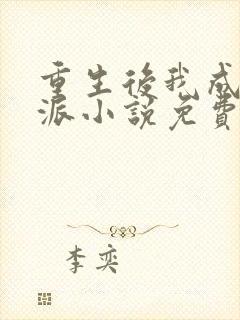 重生後我成
派小說免費
李奕